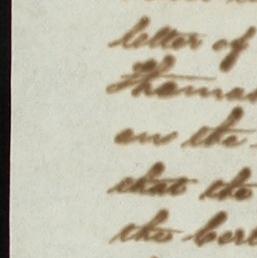 letter of
Thomas
on the
that the
the Cert